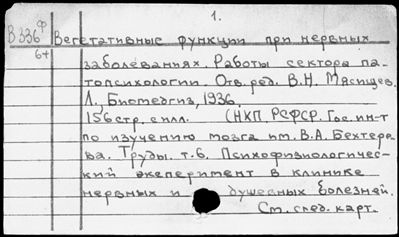 1.
В336ф Вегетативные функции при нервных
64 заболеваниях. Работы сектора па-
топсихологии. Отв. ред. В.Н. Мясищев.
Л., Биомедгиз, 1936.
156стр. с илл. (НКП РСФСР. Гос. ин-т
по изучению мозга им. В.А. Бехтере-
ва. Труды. т.6. Психофизиологичес-
кий эксперимент в клинике
нервных и душевных болезней.
См. след. карт.